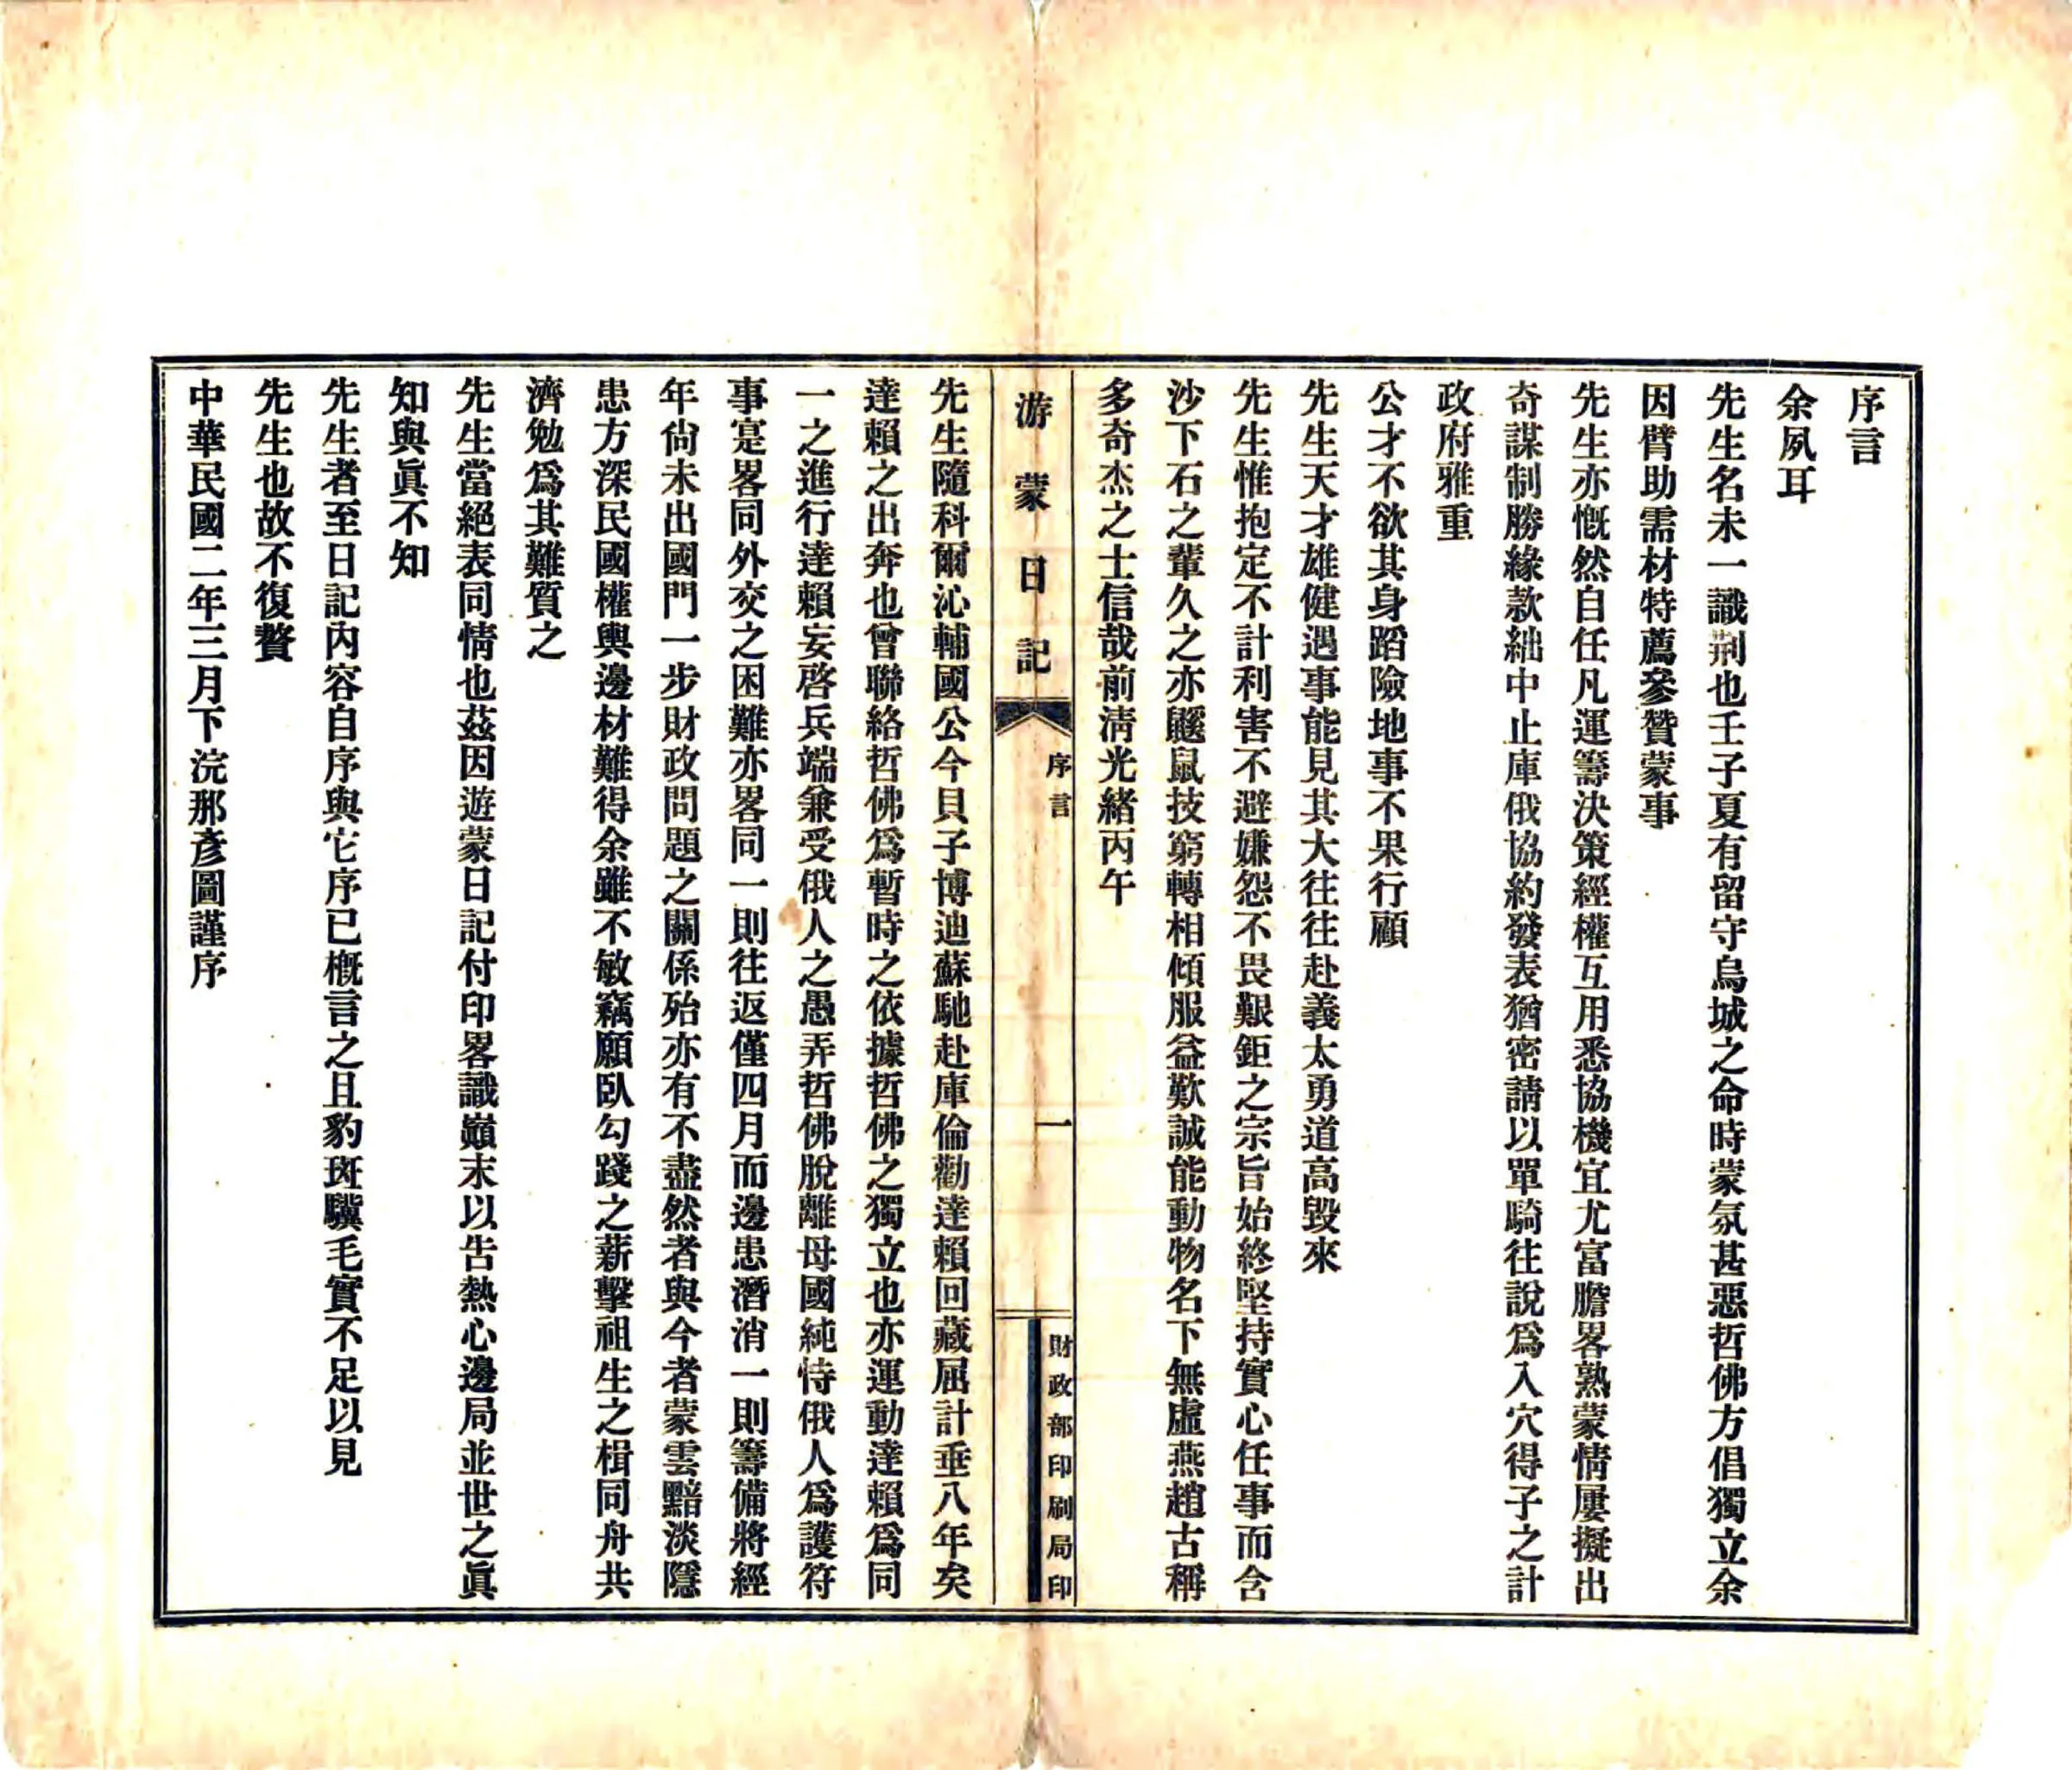 序言
余夙耳
先生名未一識荆也壬子夏有留守烏城之命時蒙氛甚惡哲佛方倡獨立余
因臂助需材特薦參贊蒙事
先生亦慨然自任凡運籌決策經權互用悉協機宜尤富膽畧熟蒙情屢擬出
奇謀制勝緣款絀中止庫俄協約發表猶密請以單騎往說爲入穴得子之計
政府雅重
公才不欲其身蹈險地事不果行顧
先生天才雄健遇事能見其大往往赴義太勇道高毀來
先生惟抱定不計利害不避嫌怨不畏艱鉅之宗旨始終堅持實心任事而含
沙下石之輩久之亦鼴鼠技窮轉相傾服益歎誠能動物名下無虛燕趙古稱
多奇杰之士信哉前淸光緒丙午
游蒙日記
序言
一
財政部印刷局印
先生隨科爾沁輔國公今貝子博迪蘇馳赴庫倫勸達賴回藏屈計垂八年矣
達賴之出奔也曾聯絡哲佛爲暫時之依據哲佛之獨立也亦運動達賴爲同
一之進行達賴妄啓兵端兼受俄人之愚弄哲佛脫離母國純恃俄人爲護符
事寔畧同外交之困難亦畧同一則往返僅四月而邊患潛消一則籌備將經
年尙未出國門一步財政問題之關係殆亦有不盡然者與今者蒙雲黯淡隱
患方深民國權輿邊材難得余雖不敏竊願臥勾踐之薪擊祖生之楫同舟共
濟勉爲其難質之
先生當絕表同情也茲因遊蒙日記付印畧識巓末以告熱心邊局並世之眞
知與眞不知
先生者至日記內容自序與它序已槪言之且豹斑驥毛實不足以見
先生也故不復贅
中華民國二年三月下浣那彥圖謹序